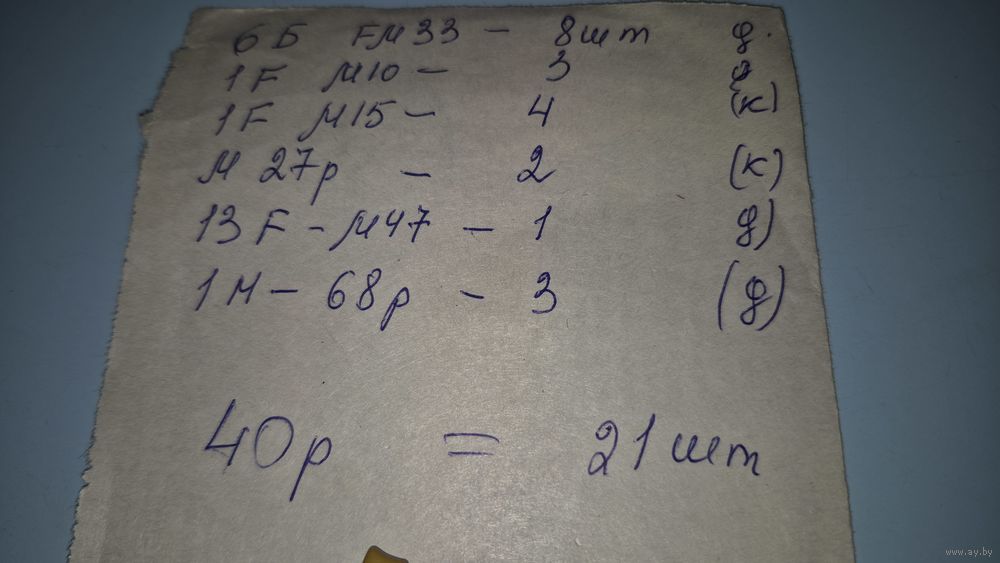 6Б FM33 - 8шт g.
1F M10 - 3 g
1F M15 - 4 (к)
M 27р - 2 (к)
13F - M47 - 1 g)
1M - 68р - 3 (g)
40р = 21шт
www.ay.by